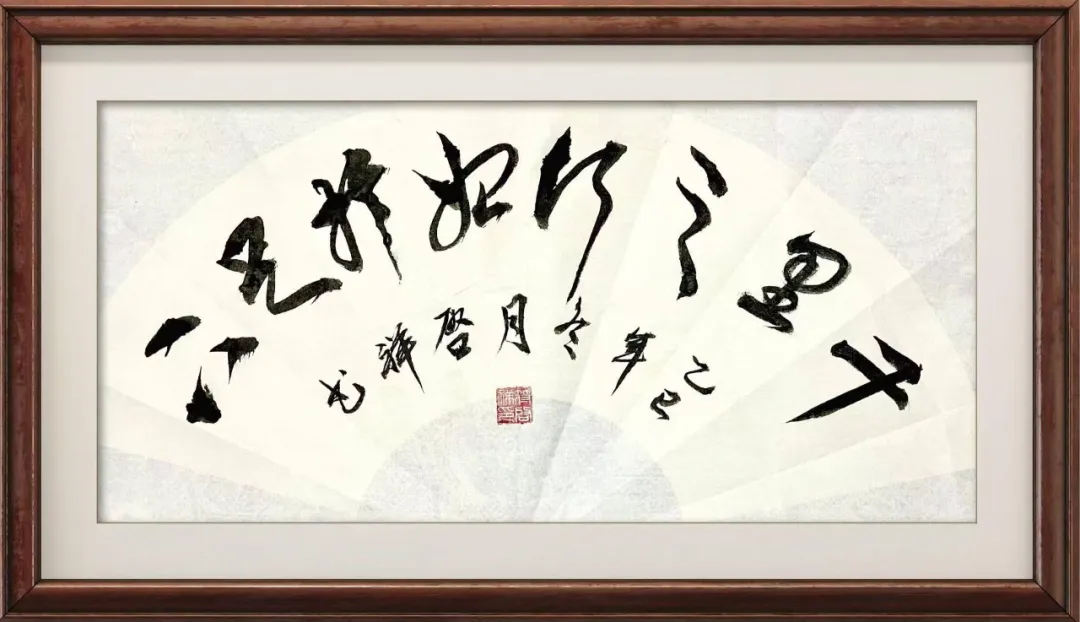 千里之行始於足下
己巳年冬月啓书